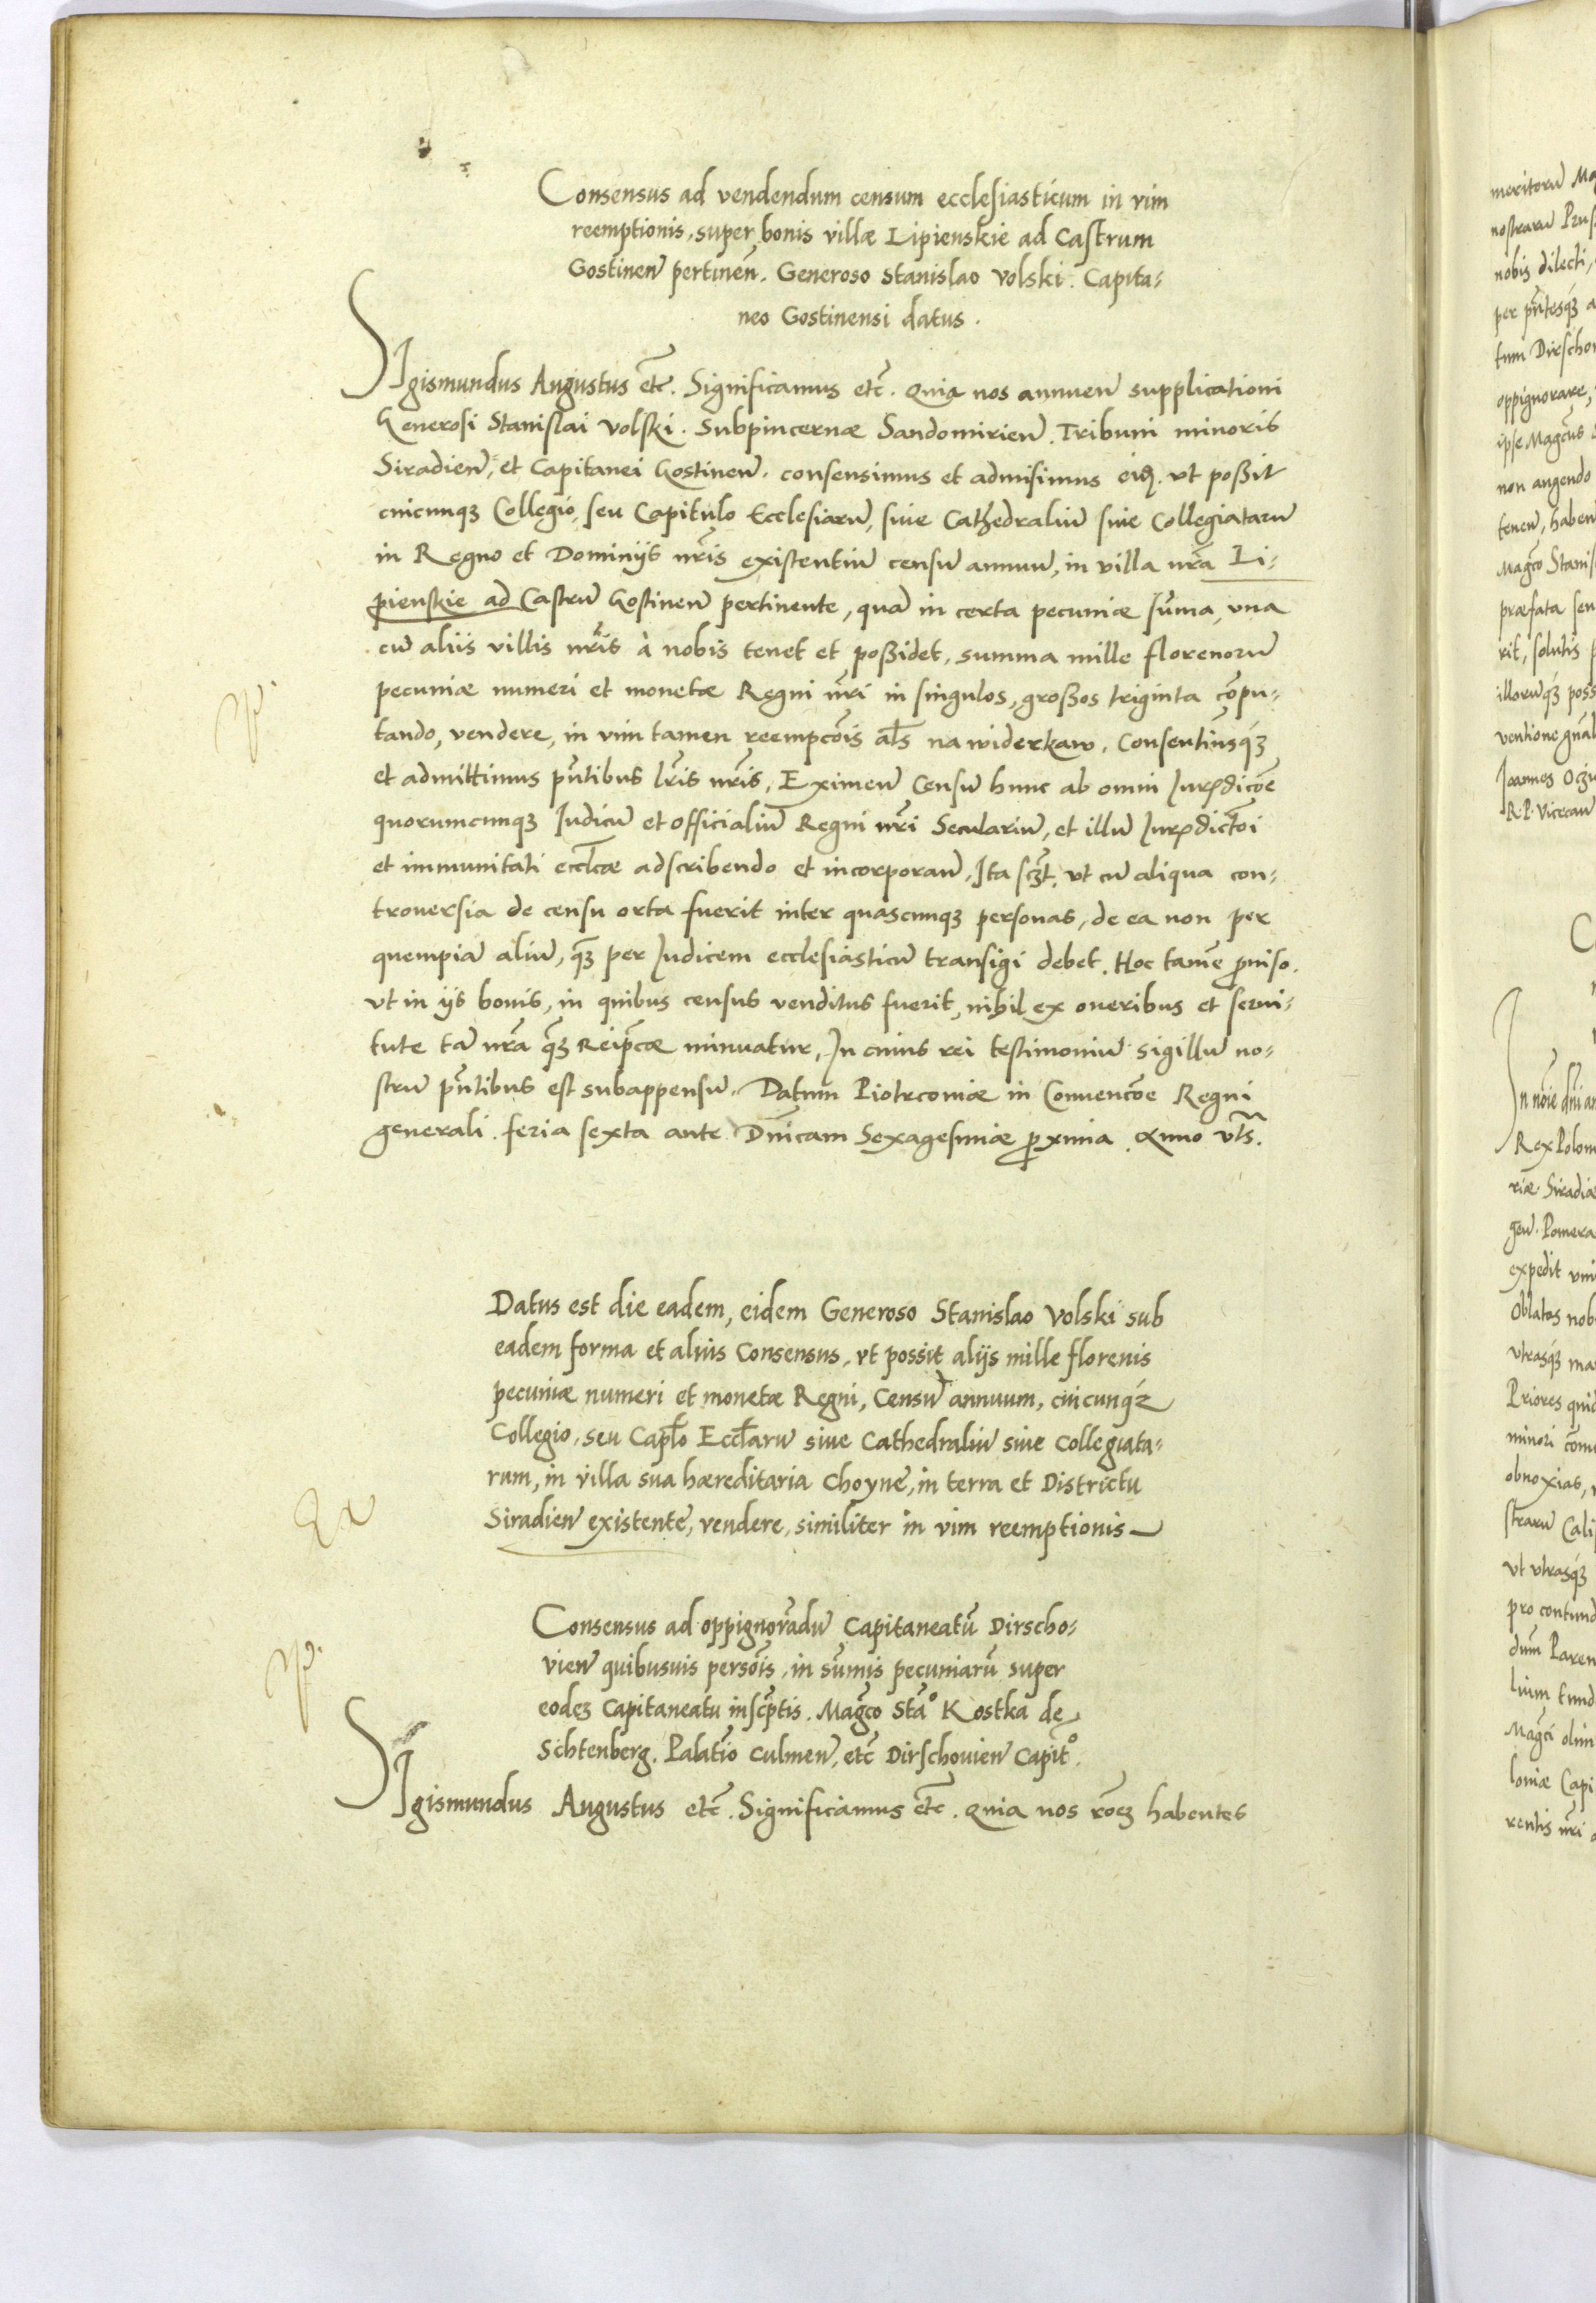 Consensus ad vendendum censum ecclesiasticum in vim
reemptionis, super bonis villæ Lipienskie ad Castrum
Gostinen̄ pertinen̄. Generoso Stanislao Volski. Capita-
neo Gostinensi datus.
SIgismundus Augustus etc̄. Significamus etc̄. Quia nos annuen̄ supplicationi
Generosi Stanislai Volski. Subpincernæ Sandomirien̄. Tribuni minoris
Siradien̄, et Capitanei Gostinen̄. consensimus et admisimus eidꝫ. vt poßit
cuicunqꝫ Collegio, seu Capitulo Ecclesiarū, siue Cathedraliū siue Collegiatarū
in Regno et Dominijs nr̄is existentiū censū annuū, in villa nr̄a Li-
pienskie ad Castrū Gostinen̄ pertinente, quā in certa pecuniæ sūma, vna
cū aliis villis nr̄is à nobis tenet et poßidet, summa mille florenorū
pecuniæ numeri et monetæ Regni nr̄i in singulos, großos triginta cōpu-
tando, vendere, in vim tamen reempcōis al̄s na widerkaw. Consentimusqꝫ
et admittimus pn̄tibus lr̄is nr̄is, Eximen̄ Censū hunc ab omni Iurisdicōe
quorumcunqꝫ Iudicū et officialiū Regni nr̄i Seculariū, et illū Iurisdictōi
et immunitati eccl̄cæ adscribendo et incorporan̄. Ita scꝫt. vt cū aliqua con-
trouersia de censu orta fuerit inter quascunqꝫ personas, de ea non per
quempiā aliū, qꝫ per Iudicem ecclesiasticū transigi debet. Hoc tamē prouiso.
vt in ijs bonis, in quibus census venditus fuerit, nihil ex oneribus et serui-
tute tā nr̄a qꝫ Reip̄cæ minuatur, In cuius rei testimoniū sigillū no-
strū pn̄tibus est subappensū. Datum Piotrcouiæ in Conuencōe Regni
generali. feria sexta ante Dn̄icam Sexagesimæ proxima. Anno vt s̄.
Datus est die eadem, eidem Generoso Stanislao Volski sub
eadem forma et alius Consensus, vt possit alijs mille florenis
pecuniæ numeri et monetæ Regni, Censū annuum, cuicunqꝫ
Collegio, seu Capl̄o Eccl̄arū siue Cathedraliū siue Collegiata-
rum, in villa sua hæreditaria Choyne, in terra et Districtu
Siradien̄ existente, vendere, similiter in vim reemptionis
Ex
Consensus ad oppignorādū Capitaneatū Dirscho-
vien̄ quibusuis persōis, in sūmis pecuniarū super
eodeꝫ Capitaneatu inscp̄tis. Magc̄o Sta° Kostka de
Schtenberg. Palatīo Culmen̄, etc̄ Dirschouien̄ Capit°.
SIgismundus Augustus etc̄. Significamus etc̄. Quia nos rōeꝫ habentes
nobis dilecti,
tum Dirscho
oppignorare,
ipse Magc̄us
non augendo
tenen̄, haben
Magc̄o Stanis
præfata
rit, solutis
Ioannes Oc
Rex Polon
riæ Siradiæ
gen̄. Pomera
expedit
Oblatas nob
Priores quid
minori
obnoxias,
Magc̄i olim
loniæ Capi